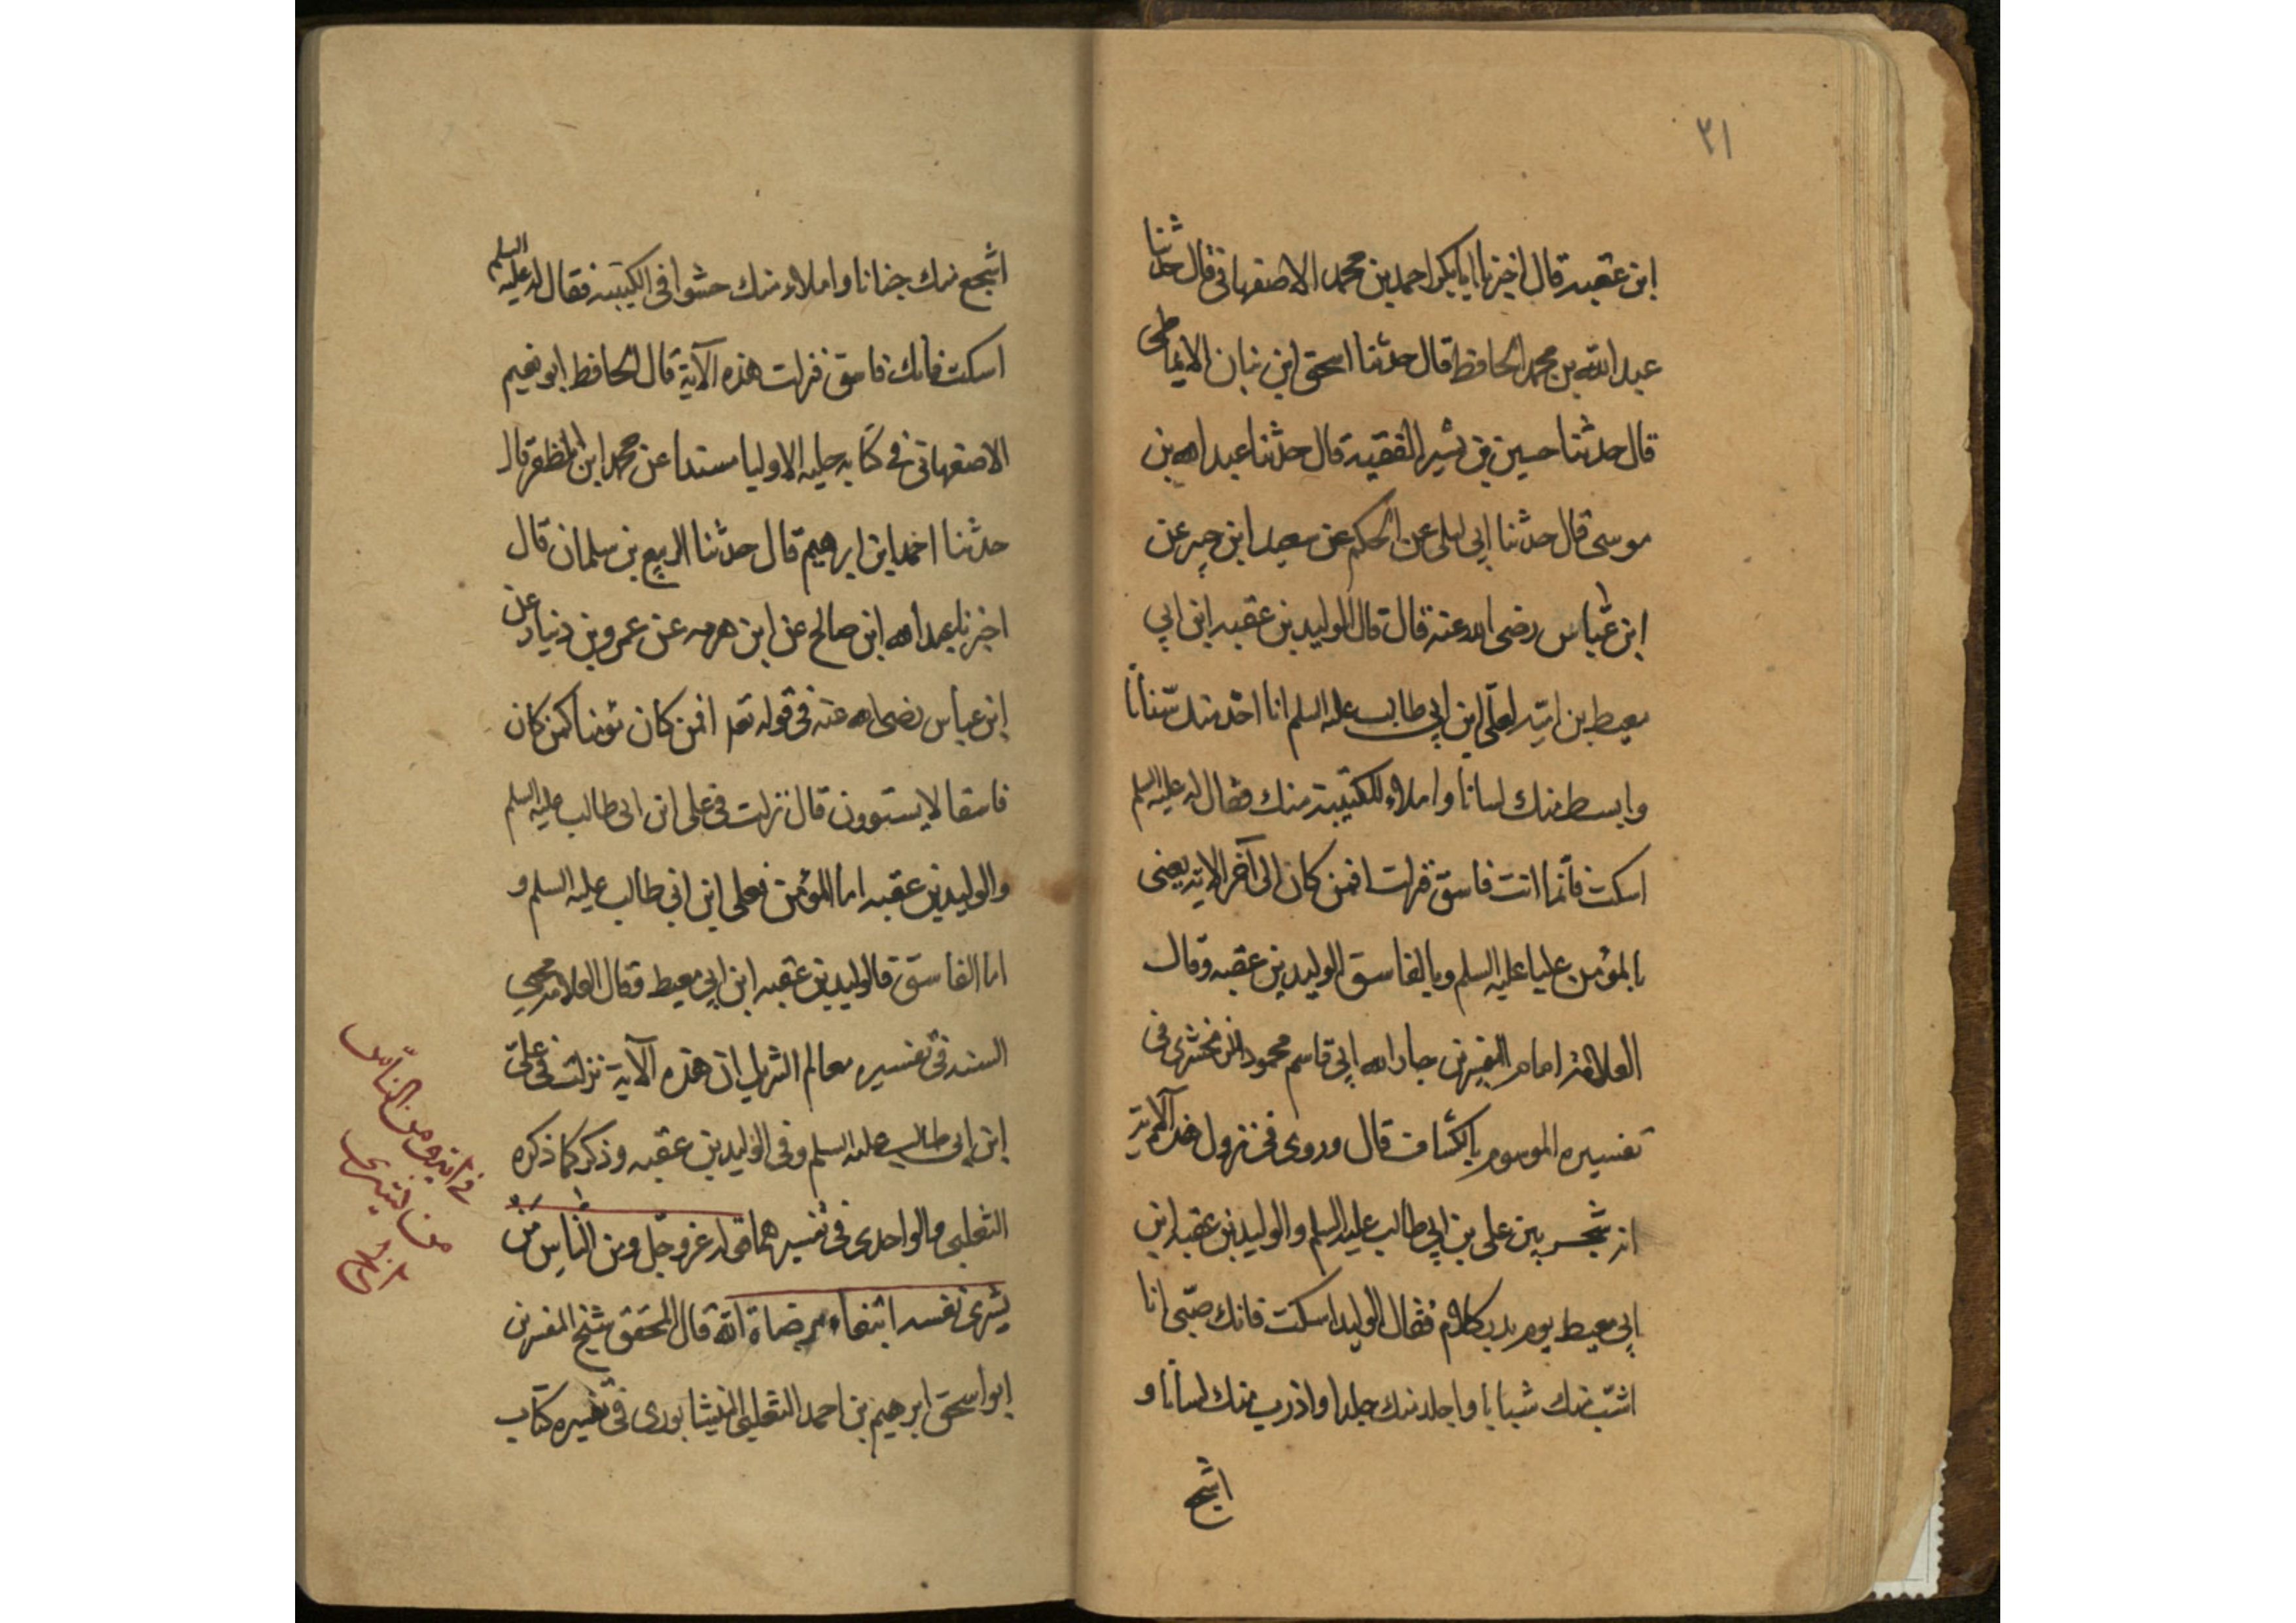 ٣١
ابن عقبة قال اخبرنا ابابكر احمد بن محمد الاصفهاني قال حدثنا
عبد الله بن محمد الحافظ قال حدثنا اسحق ابن بنان الانماطى
قال حدثنا حسين بن بشير الفقيه قال حدثنا عبد الله بن
موسى قال حدثنا ابي ليلى عن الحكم عن سعيد ابن جبير عن
ابن عباس رضى الله عنه قال قال الوليد بن عقبه ابن ابي
معيط بن اميّه لعلّي ابن ابي طالب عليه السلم انا احد منك سنانا
وابسط منك لسانا واملاء للكتيبة منك فقال له عليه السلم
اسكت فانّما انت فاسق فنزلت افمن كان الى آخر الايه يعنى
بالمؤمن عليا عليه السلم وبالفاسق الوليد بن عقبه وقال
العلامة امام المفسرين جار الله ابي قاسم محمود الزمخشرى فى
تفسيره الموسوم بالكشاف قال وروى فى نزول هذه الآية
انه شجر بين على بن ابي طالب عليه السلم والوليد بن عقبه ابن
ابي معيط يوم بدر كلام فقال الوليد اسكت فانك صبّى انا
اشبّ منك شبابا واجلد منك جلدا واذرب منك لسانا و
اشجع
اشجع منك جنانا واملاء منك حشوا فى الكتيبه فقال له عليه السلم
اسكت فانك فاسق فنزلت هذه الآية قال الحافظ ابو نعيم
الاصفهانى فى كتابه حليه الاوليا مسندا عن محمد ابن المظفر قال
حدثنا احمد ابن ابرهيم قال حدثنا الربيع بن سلمان قال
اخبرنا عبد الله ابن صالح عن ابن هرمه عن عمرو بن دنيار عن
ابن عباس رضى الله عنه فى قوله تعم افمن كان مؤمنا كمن كان
فاسقا لا يستوون قال نزلت فى على ابن ابى طالب عليه السلم
والوليد بن عقبه اما المؤمن فعلى ابن ابى طالب عليه السلم و
اما الفاسق فالوليد بن عقبه ابن ابي معيط وقال العلامه محيى
السنه فى تفسيره معالم التنزيل ان هذه الآية نزلت فى علىّ
ابن ابى طالب عليه السلم وفى الوليد بن عقبه وذكر كما ذكره
الثعلبى والواحدى فى تفسيرهما قوله عز وجّل ومن الناس من
يشرى نفسه ابتغاء مرضاة الله قال المحقق شيخ المفسرين
ابو اسحق ابرهيم بن احمد الثعلبى النيشابورى فى تفسيره كتاب
فى آية ومن النّاس
من يشرى